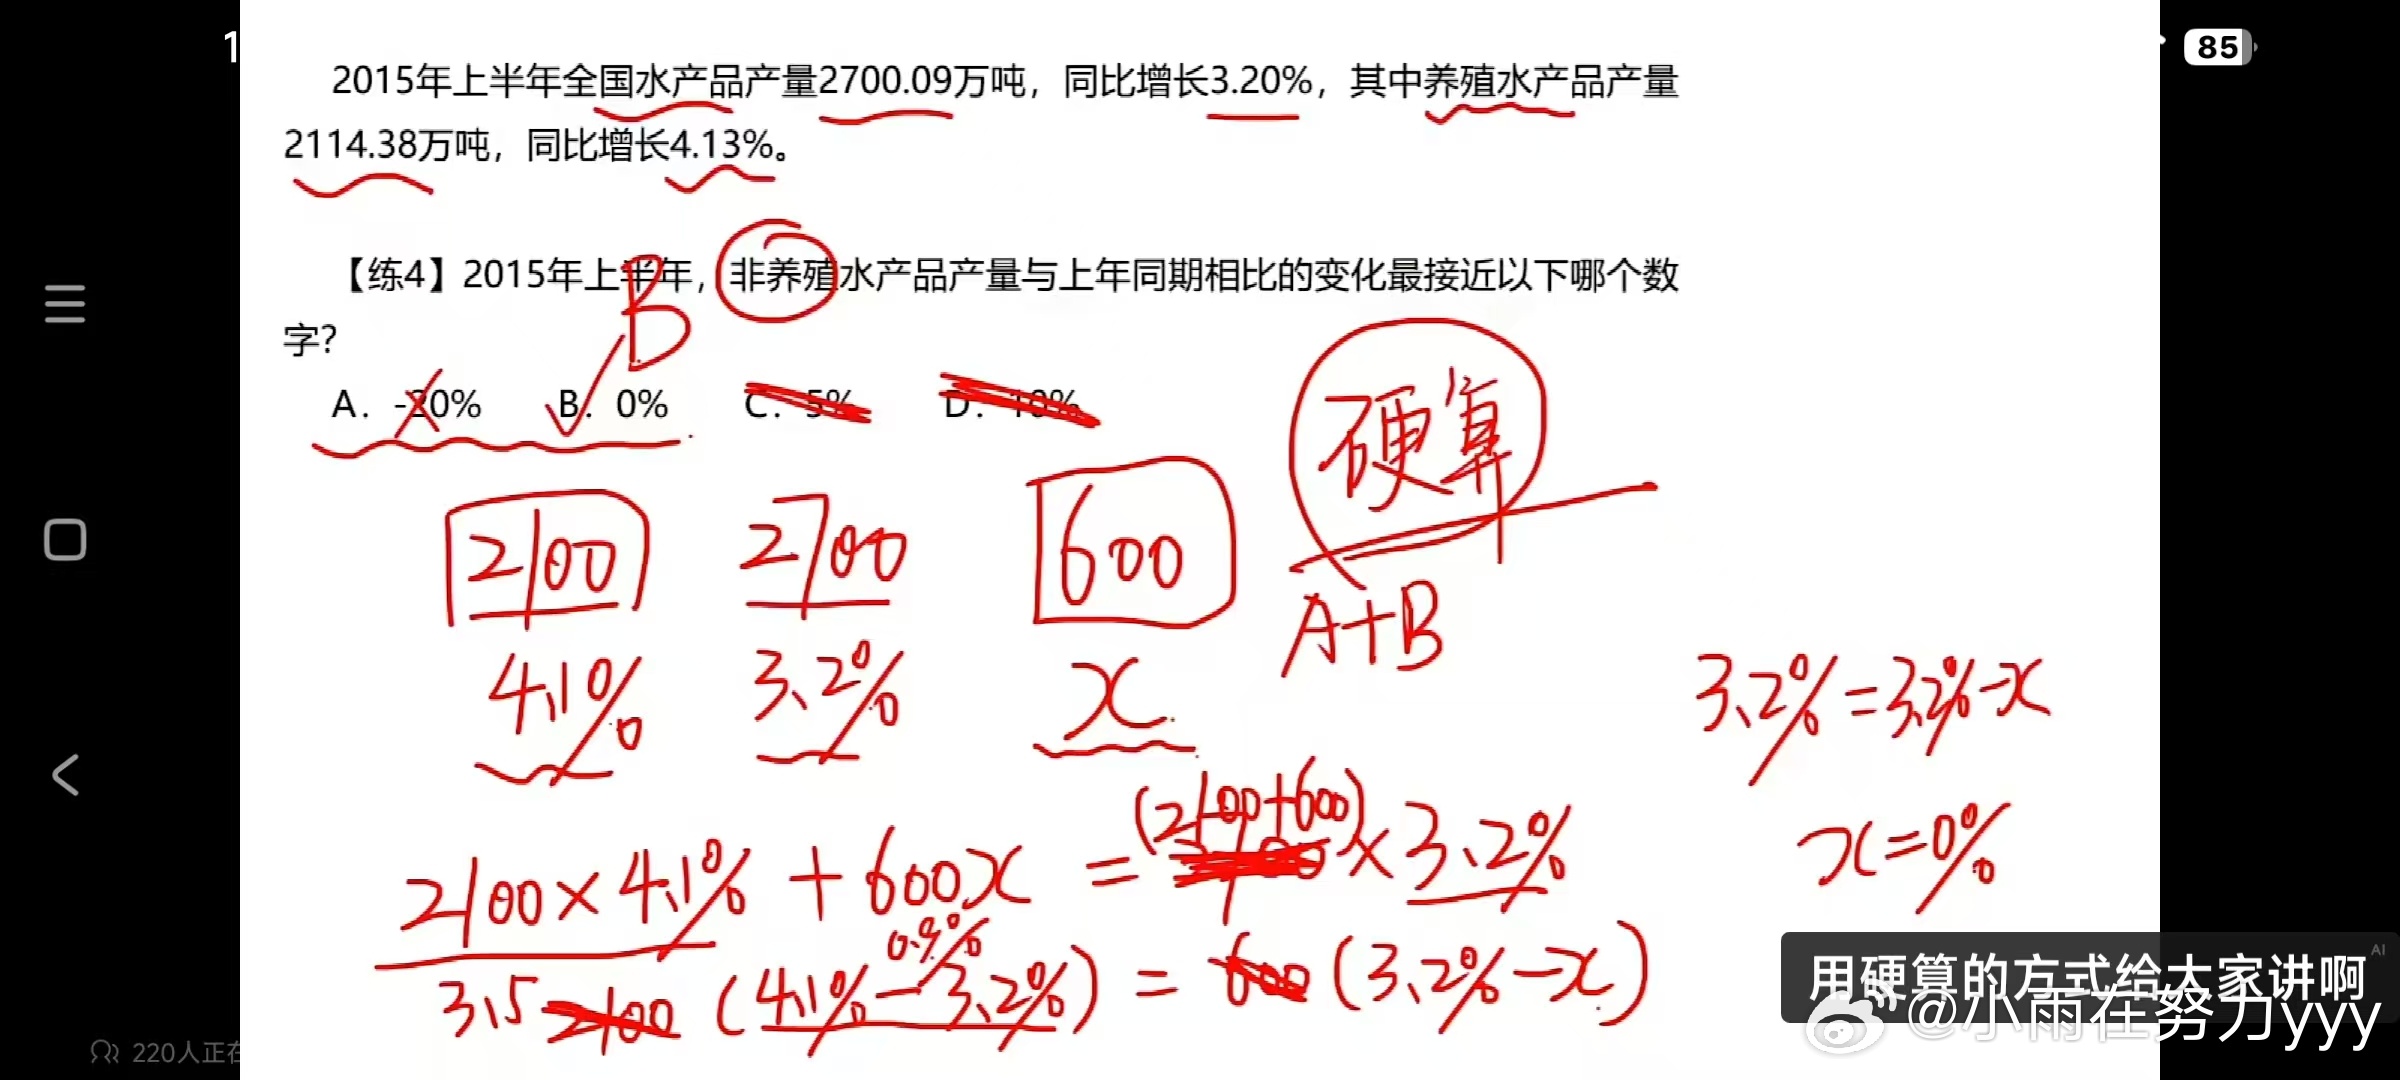 1
85
2015年上半年全国水产品产量2700.09万吨，同比增长3.20%，其中养殖水产品产量
2114.38万吨，同比增长4.13%。
【练4】2015年上半年，非养殖水产品产量与上年同期相比的变化最接近以下哪个数
字？
B
A. -20% B. 0% C. 5% D. 10%
硬算
2100 2700 600
A+B
4.1% 3.2% x
3.2%=3.2%-x
(2100+600)
2100×4.1%+600x=2700×3.2%
x=0%
0.9%
3.5 2100(4.1%-3.2%)=600(3.2%-x)
用硬算的方式给大家讲啊
AI
@小雨在努力yyy
220人正在